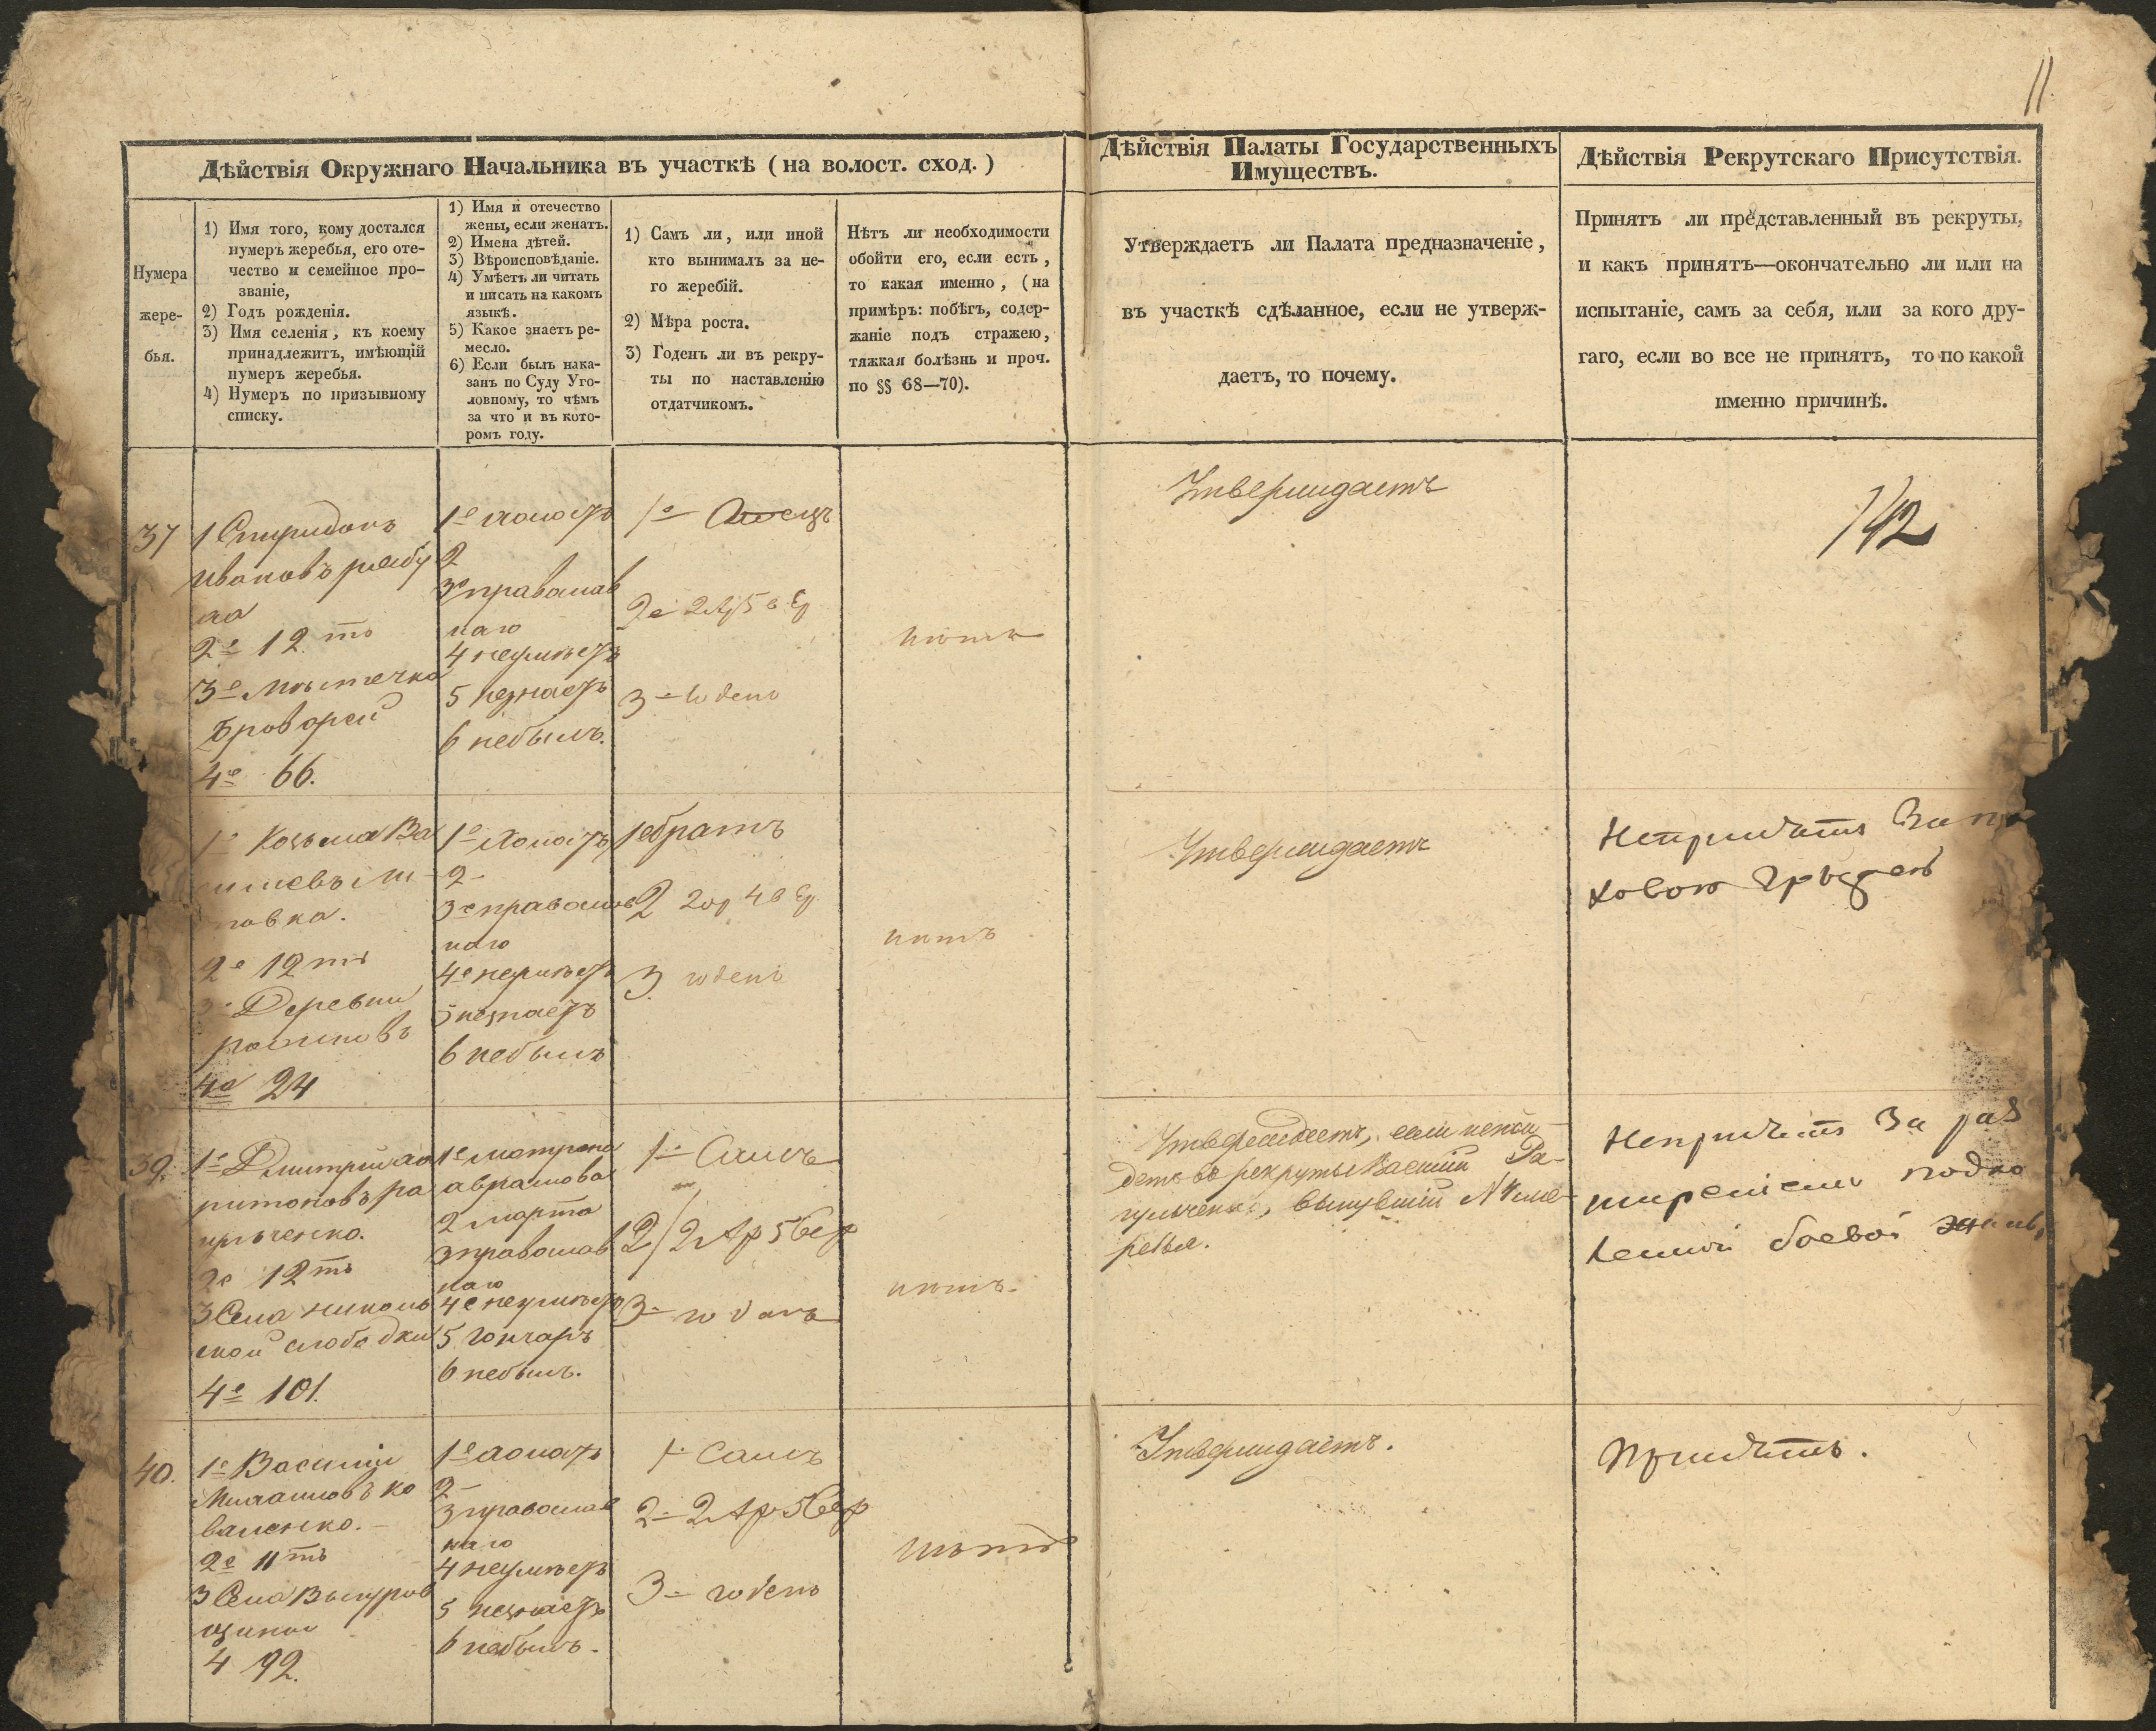 11.
Дѣйствія Окружнаго Начальника въ участкѣ (на волост. сход.)
Дѣйствія Палаты Государственныхъ
Имуществъ.
Дѣйствія Рекрутскаго Присутствія.
Нумера
жере-
бья.
1) Имя того, кому достался
нумеръ жеребья, его оте-
чество и семейное про-
званіе,
2) Годъ рожденія.
3) Имя селенія, къ коему
принадлежитъ, имѣющій
нумеръ жеребья.
4) Нумеръ по призывному
списку.
1) Имя и отечество
жены, если женатъ.
2) Имена дѣтей.
3) Вѣроисповѣданіе.
4) Умѣетъ ли читать
и писать на какомъ
языкѣ.
5) Какое знаетъ ре-
месло.
6) Если былъ нака-
занъ по Суду Уго-
ловному, то чѣмъ
за что и въ кото-
ромъ году.
1) Самъ ли, или иной
кто вынималъ за не-
го жеребій.
2) Мѣра роста.
3) Годенъ ли въ рекру-
ты по наставленію
отдатчикомъ.
Нѣтъ ли необходимости
обойти его, если есть,
то какая именно, (на
примѣръ: побѣгъ, содер-
жаніе подъ стражею,
тяжкая болѣзнь и проч.
по §§ 68—70).
Утверждаетъ ли Палата предназначеніе,
въ участкѣ сдѣланное, если не утверж-
даетъ, то почему.
Принятъ ли представленный въ рекруты,
и какъ принятъ—окончательно ли или на
испытаніе, самъ за себя, или за кого дру-
гаго, если во все не принятъ, то по какой
именно причинѣ.
37
1 Спиридонъ
Ивановъ рябу
ха
2е 12тъ
3е Мѣстечка
Броварей
4е 66.
1е холостъ
2
3е православ
наго
4 неумѣетъ
5 незнаетъ
6 небылъ.
1е Отецъ
2е 2 Ар 5 в Ер
3 – годенъ
нѣтъ
Утверждаетъ
142
1е Козьма Ва
2е 12тъ
3е Деревни
4е 24
1е холостъ
2 -
3е православ
наго
4е неумѣетъ
5 незнаетъ
6 небылъ
1е братъ
2 2 ар 4 в Ер
3 годенъ
нѣтъ
Утверждаетъ
Непринятъ За
39.
1е Дмитрій ха
ритоновъ ра
2е 12тъ
3 Села николь
ской слободки
4е 101.
1е матрена
аврамова
2 марта
3 православ
наго
4е неумѣетъ
5 гончаръ
6 небылъ.
1 – Самъ
2 / 2 Ар 5 Вер
3 – годенъ
нѣтъ.
Утверждаетъ, если непой-
детъ въ рекруты Василій Ра-
вынувшій № жере-
Непринятъ За рас
ширеніемъ подко
лѣнной боевой
40.
1е Василій
Михайловъ ко
валенко. –
2е 11тъ
3 Села Выгуров
щины
4 92.
1е холостъ
2 –
3 православ
наго
4 неумѣетъ
5 незнаетъ
6 небылъ.
1 – Самъ
2 – 2 Ар 5 Вер
3 – годенъ
нѣтъ
Утверждаетъ.
Принятъ.